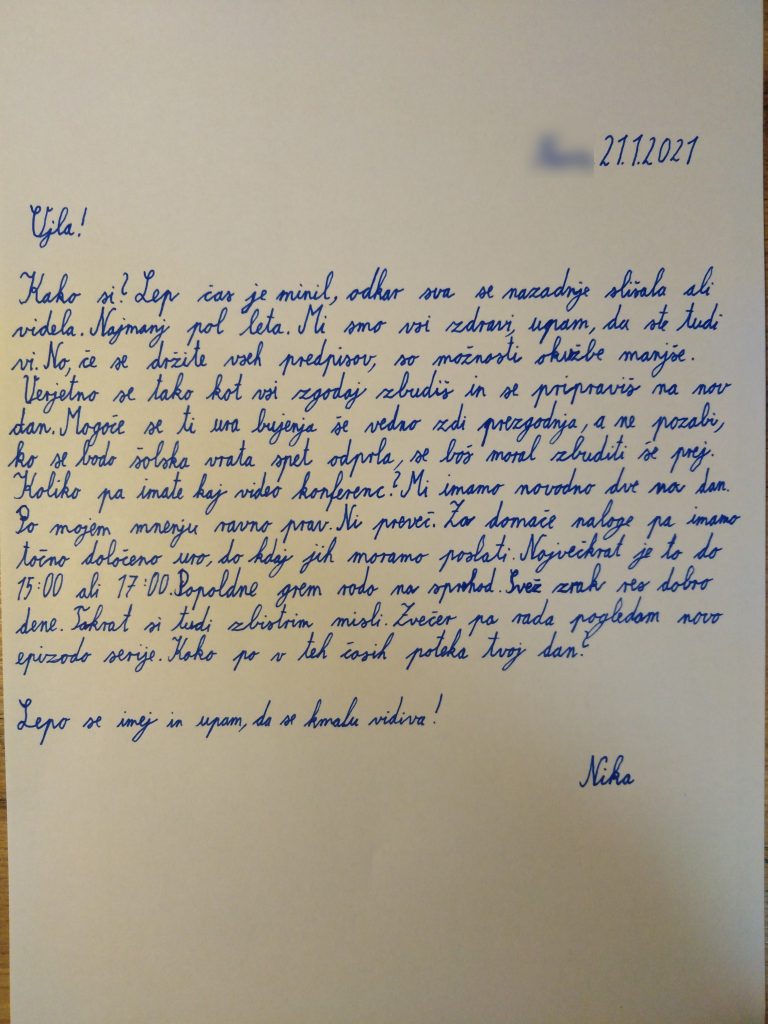 21.1.2021
Ojla!
Kako si? Lep čas je minil, odkar sva se nazadnje slišala ali
videla. Najmanj pol leta. Mi smo vsi zdravi, upam, da ste tudi
vi. No, če se držite vseh predpisov, so možnosti okužbe manjše.
Verjetno se tako kot vsi zgodaj zbudiš in se pripraviš na nov
dan. Mogoče se ti ura bujenja še vedno zdi prezgodnja, a ne pozabi,
ko se bodo šolska vrata spet odprla, se boš moral zbuditi še prej.
Koliko pa imate kaj video konferenc? Mi imamo navadno dve na dan.
Po mojem mnenju ravno prav. Ni preveč. Za domače naloge pa imamo
točno določeno uro, do kdaj jih moramo poslati. Največkrat je to do
15:00 ali 17:00. Popoldne grem rada na sprehod. Svež zrak res dobro
dene. Takrat si tudi zbistrim misli. Zvečer pa rada pogledam novo
epizodo serije. Kako pa v teh časih poteka tvoj dan?
Lepo se imej in upam, da se kmalu vidiva!
Nika